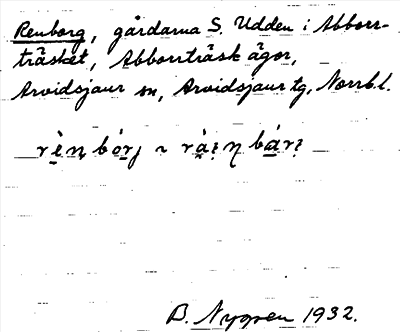 Renborg, gårdarna S. Udden i Abborr-
träsket, Abborrträsk ägor,
Arvidsjaur sn, Arvidsjaur tg, Norrb. l.
B. Nygren 1932.